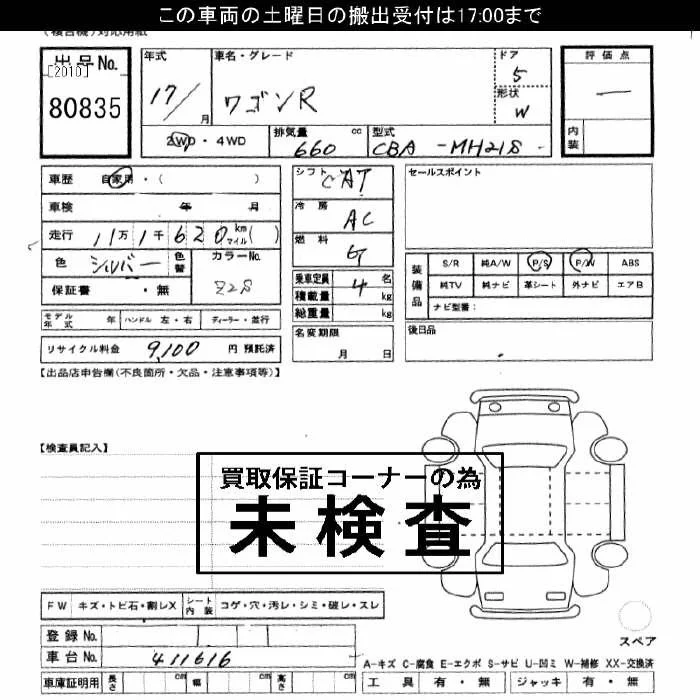 この車両の土曜日の搬出受付は17:00まで
出品No.
[2010]
80835
年式
17/ 月
車名・グレード
ワゴンR
ドア
5
形状
W
評価点
一
内装
2WD・4WD
排気量 cc
660
型式
CBA-MH21S
車歴 自家用・( )
車検 年 月
走行 11万1千620km マイル( )
色 シルバー 色替
カラーNo.
Z2S
保証書 ・無
シフト
CAT
冷房
AC
燃料
G
乗車定員 4 名
積載量 kg
総重量 kg
セールスポイント
装備品
S/R 純A/W P/S P/W ABS
純TV 純ナビ 革シート 外ナビ エアB
ナビ型番:
モデル年式 年 ハンドル 左・右 ディーラー・並行
リサイクル料金 9,100 円 預託済
名変期限
月 日
後日品
【出品店申告欄(不良箇所・欠品・注意事項等)】
【検査員記入】
買取保証コーナーの為
未検査
FW キズ・トビ石・割レX シート内装 コゲ・穴・汚レ・シミ・破レ・スレ
登録No.
車台No. 411616
車庫証明用 長さ cm 幅 cm 高さ cm
スペア
A-キズ C-腐食 E-エクボ S-サビ U-凹ミ W-補修 XX-交換済
工具 有・無 ジャッキ 有・無